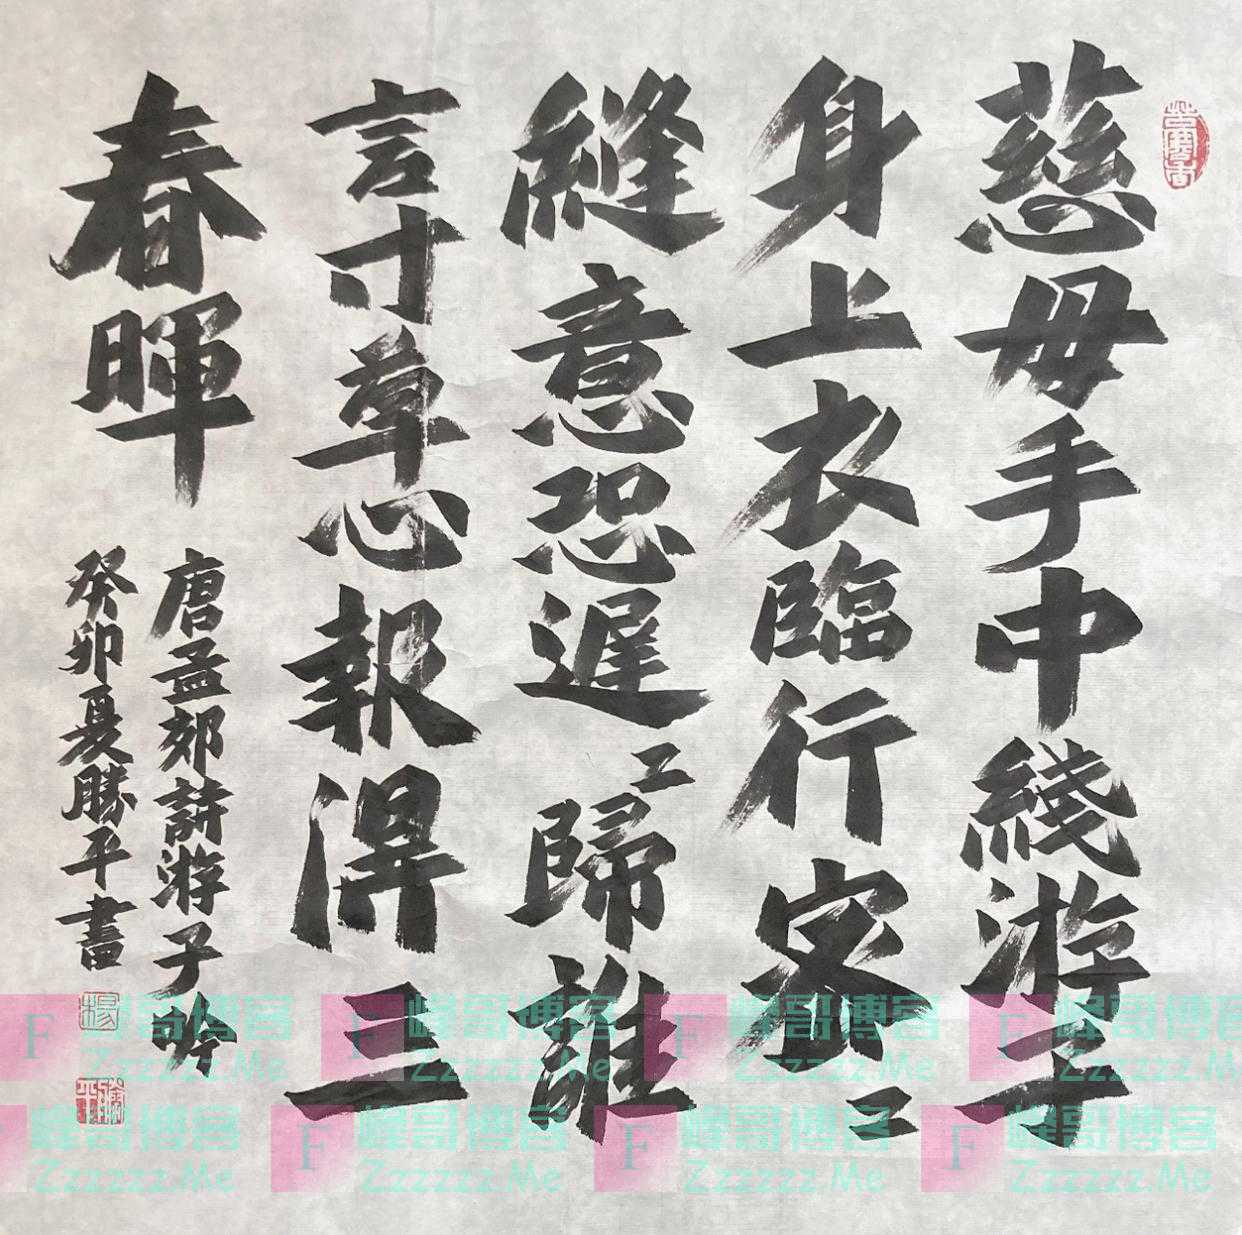 慈母手中綫游子
身上衣臨行密〻
縫意恐遲〻歸誰
言寸草心報得三
春暉
唐孟郊詩游子吟
癸卯夏勝平書
楊
勝平
F 峰哥博客 F 峰哥博客 F 峰哥博客 F 峰哥博客
Zzzzzz.Me Zzzzzz.Me Zzzzzz.Me Zzzzzz.Me
峰哥博客 F 峰哥博客 F 峰哥博客 F 峰哥博客
Zzzzzz.Me Zzzzzz.Me Zzzzzz.Me Zzzzzz.Me